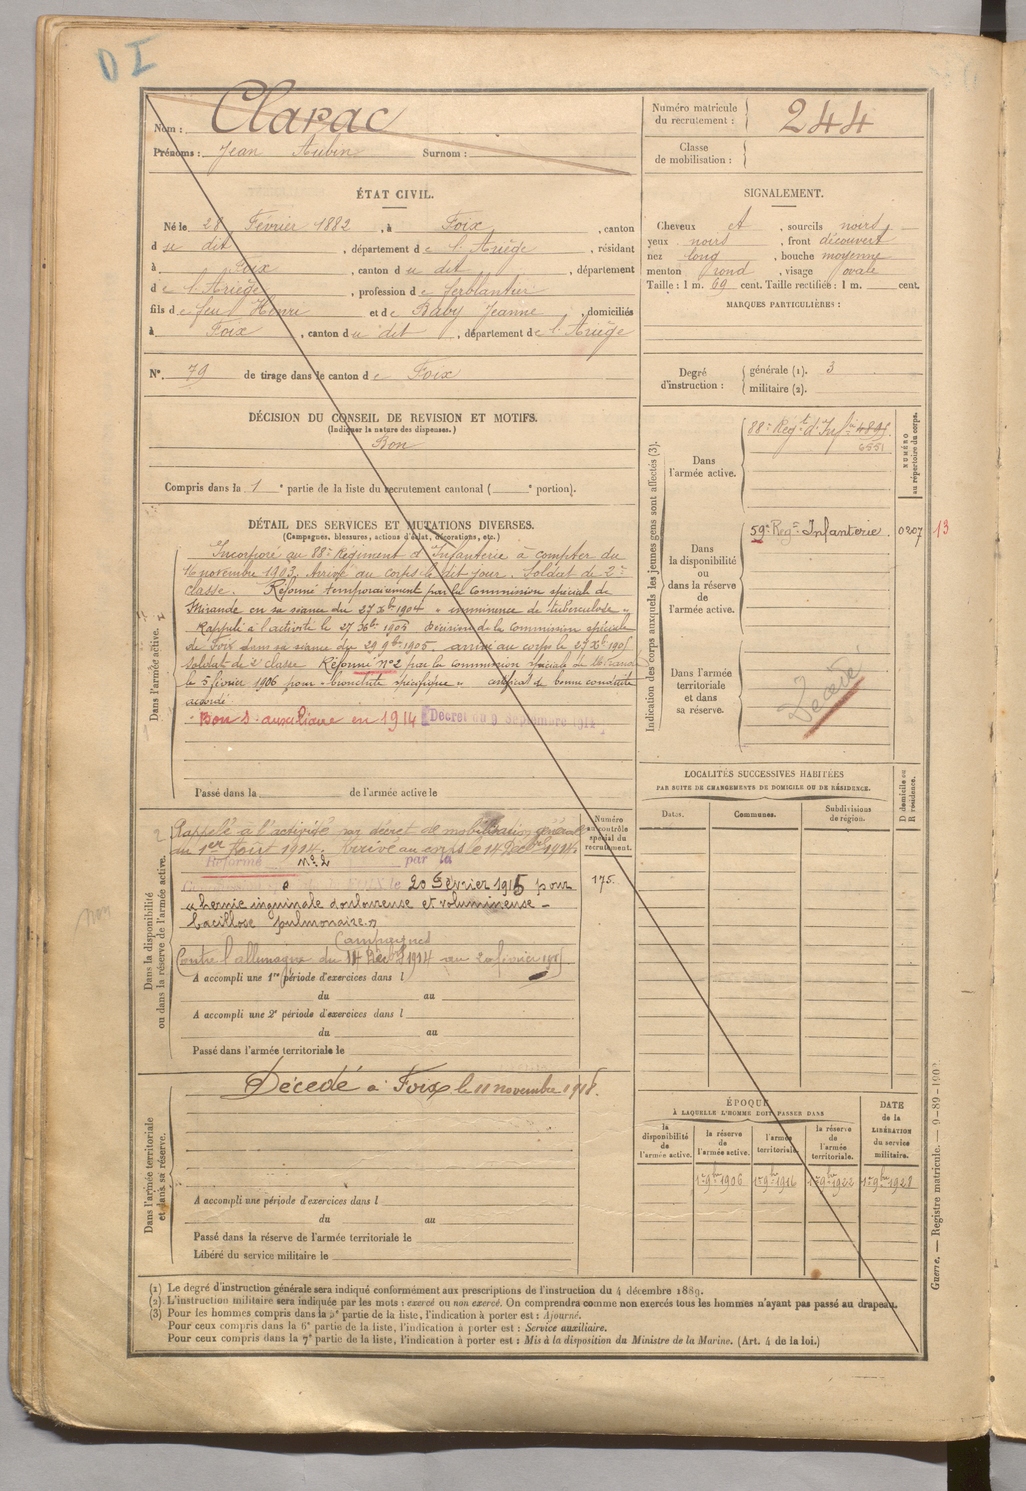 D I
Nom : Clarac
Prénoms : Jean Aubin Surnom :
Numéro matricule du recrutement : 244
Classe de mobilisation :
ÉTAT CIVIL.
Né le 28 Février 1882, à Foix, canton
d u dit, département de l'Ariège, résidant
à Foix, canton du dit, département
de l'Ariège, profession de ferblantier
fils de feu Henri et de Baby Jeanne, domiciliés
à Foix, canton du dit, département de l'Ariège
N°. 79 de tirage dans le canton de Foix
SIGNALEMENT.
Cheveux et, sourcils noirs
yeux noirs, front découvert
nez long, bouche moyenne
menton rond, visage ovale
Taille : 1 m. 69 cent. Taille rectifiée : 1 m. cent.
MARQUES PARTICULIÈRES :
Degré d'instruction : générale (1). 3
militaire (2).
DÉCISION DU CONSEIL DE REVISION ET MOTIFS.
(Indiquer la nature des dispenses.)
Bon
Compris dans la 1e partie de la liste du recrutement cantonal ( e portion).
DÉTAIL DES SERVICES ET MUTATIONS DIVERSES.
(Campagnes, blessures, actions d'éclat, décorations, etc.)
Dans l'armée active.
Incorporé au 88e Régiment d'Infanterie à compter du
16 novembre 1903. Arrivé au corps le dit jour. Soldat de 2e
classe. Réformé temporairement par la Commission spéciale de
Mirande en sa séance du 27 Xbre 1904 "imminence de tuberculose"
Rappelé à l'activité le 27 Xbre 1905 Décision de la Commission spéciale
de Foix dans sa séance du 29 9bre 1905. arrivé au corps le 27 Xbre 1905
soldat de 2e classe Réformé n°2 par la commission spéciale de
le 5 février 1906 pour "bronchite spécifique" certificat de bonne conduite
accordé
Bon S. auxiliaire en 1914 Décret du 9 Septembre 1914
Passé dans la de l'armée active le
Indication des corps auxquels les jeunes gens sont affectés (3).
NUMÉRO au répertoire du corps.
Dans l'armée active.
88e Régt d'Infie 4895
6551
Dans la disponibilité ou dans la réserve de l'armée active.
59e Regt Infanterie 0207 13
Dans l'armée territoriale et dans sa réserve.
Décédé
Dans la disponibilité ou dans la réserve de l'armée active.
Numéro au contrôle spécial du recrutement.
175.
Rappelé à l'activité par décret de mobilisation générale
du 1er Août 1914. Arrivé au corps le 14 Décbre 1914.
Réformé n°2 par la
le 20 Février 1915 pour
"hernie inguinale douloureuse et volumineuse -
bacillose pulmonaire."
Campagnes
Contre l'allemagne du 14 Décbre 1914 au 20 février 1915
A accompli une 1re période d'exercices dans l
du au
A accompli une 2e période d'exercices dans l
du au
Passé dans l'armée territoriale le
LOCALITÉS SUCCESSIVES HABITÉES
PAR SUITE DE CHANGEMENTS DE DOMICILE OU DE RÉSIDENCE.
Dates. Communes. Subdivisions de région. D domicile ou R résidence.
Dans l'armée territoriale et dans sa réserve.
Décédé à Foix le 11 novembre 1918.
A accompli une période d'exercices dans l
du au
Passé dans la réserve de l'armée territoriale le
Libéré du service militaire le
ÉPOQUE
À LAQUELLE L'HOMME DOIT PASSER DANS
la disponibilité de l'armée active.
la réserve de l'armée active.
l'armée territoriale.
la réserve de l'armée territoriale.
DATE de la LIBÉRATION du service militaire.
1er 9bre 1906 1er 9bre 1916 1er 9bre 1922 1er 9bre 1928
(1) Le degré d'instruction générale sera indiqué conformément aux prescriptions de l'instruction du 4 décembre 1889.
(2) L'instruction militaire sera indiquée par les mots : exercé ou non exercé. On comprendra comme non exercés tous les hommes n'ayant pas passé au drapeau.
(3) Pour les hommes compris dans la 5e partie de la liste, l'indication à porter est : Ajourné.
Pour ceux compris dans la 6e partie de la liste, l'indication à porter est : Service auxiliaire.
Pour ceux compris dans la 7e partie de la liste, l'indication à porter est : Mis à la disposition du Ministre de la Marine. (Art. 4 de la loi.)
Guerre. — Registre matricule. — 9-89-1902